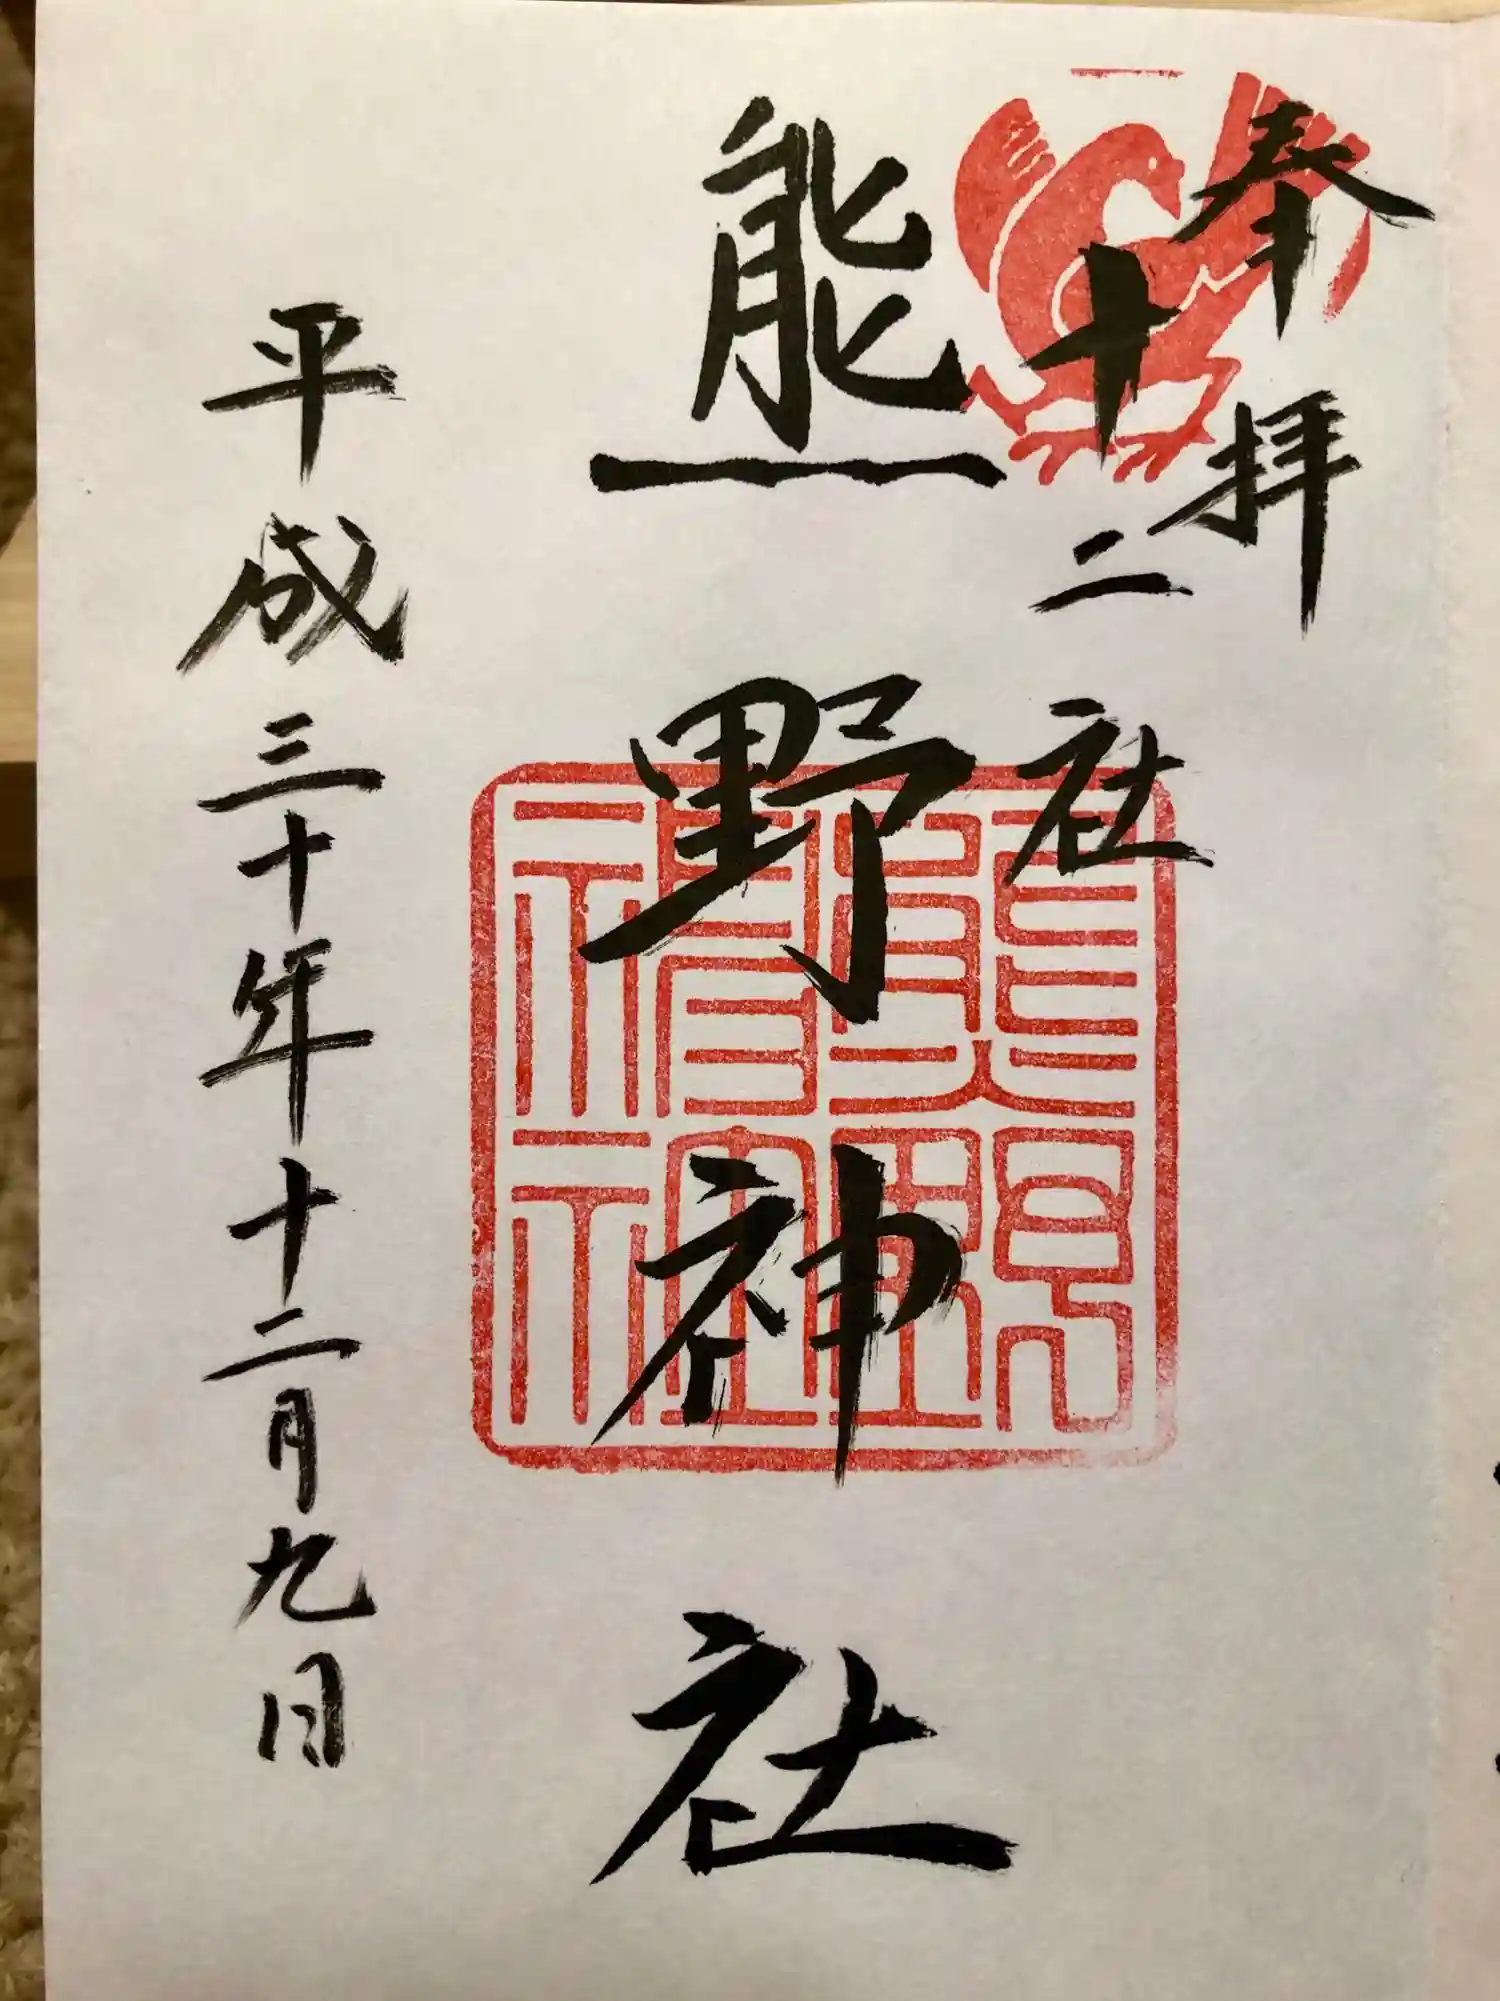 奉拝
十二社
熊野神社
平成三十年十二月九日